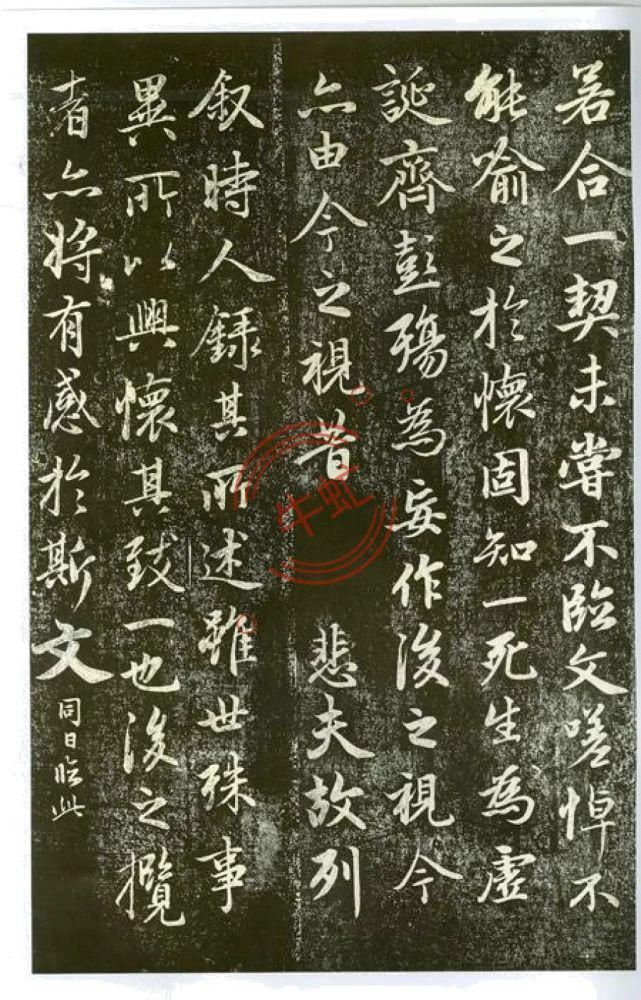 若合一契未嘗不臨文嗟悼不
能喻之於懷固知一死生為虛
誕齊彭殤為妄作後之視今
亦由今之視昔 悲夫故列
叙時人錄其所述雖世殊事
異所以興懷其致一也後之攬
者亦將有感於斯文 同日臨此
牛虹